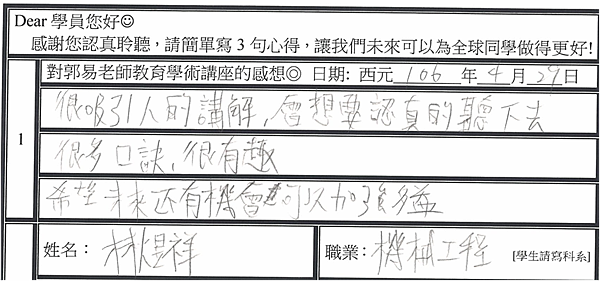 Dear 學員您好☺
感謝您認真聆聽，請簡單寫 3 句心得，讓我們未來可以為全球同學做得更好!
對郭易老師教育學術講座的感想◎ 日期: 西元 106 年 4 月 29 日
1
很吸引人的講解，會想要認真的聽下去
很多口訣、很有趣
希望未來还有機會可以加強多益
姓名： 林煜祥 職業：機械工程 [學生請寫科系]